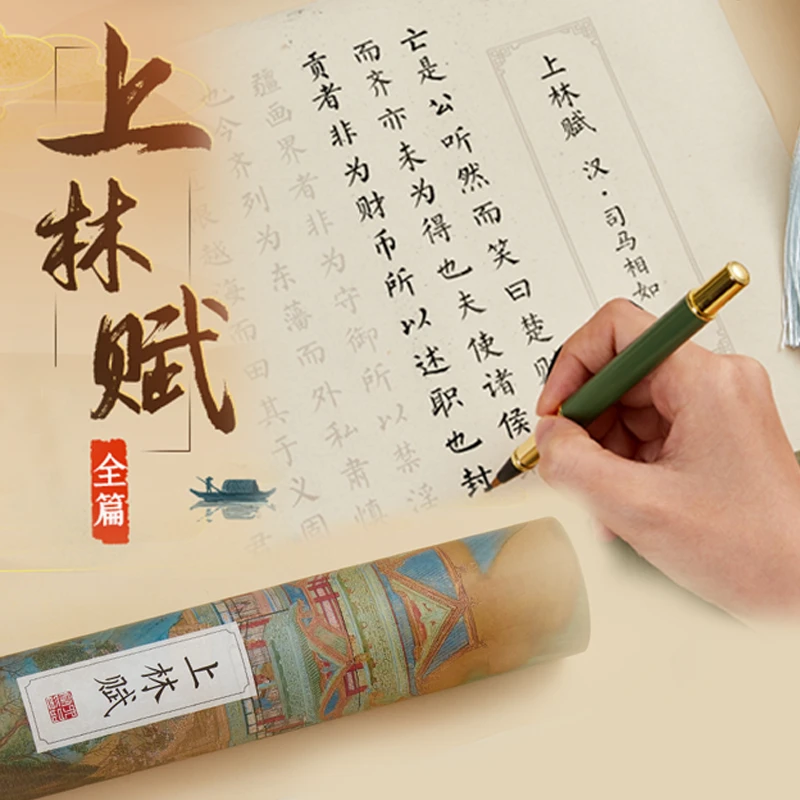 上林赋
全篇
上林赋 汉·司马相如
亡是公听然而笑曰楚
而齐亦未为得也夫使诸侯
贡者非为财币所以述职也封
疆画界者非为守御所以禁淫
也今齐列为东藩而外私肃慎
越海而田其于义固
君
上林赋